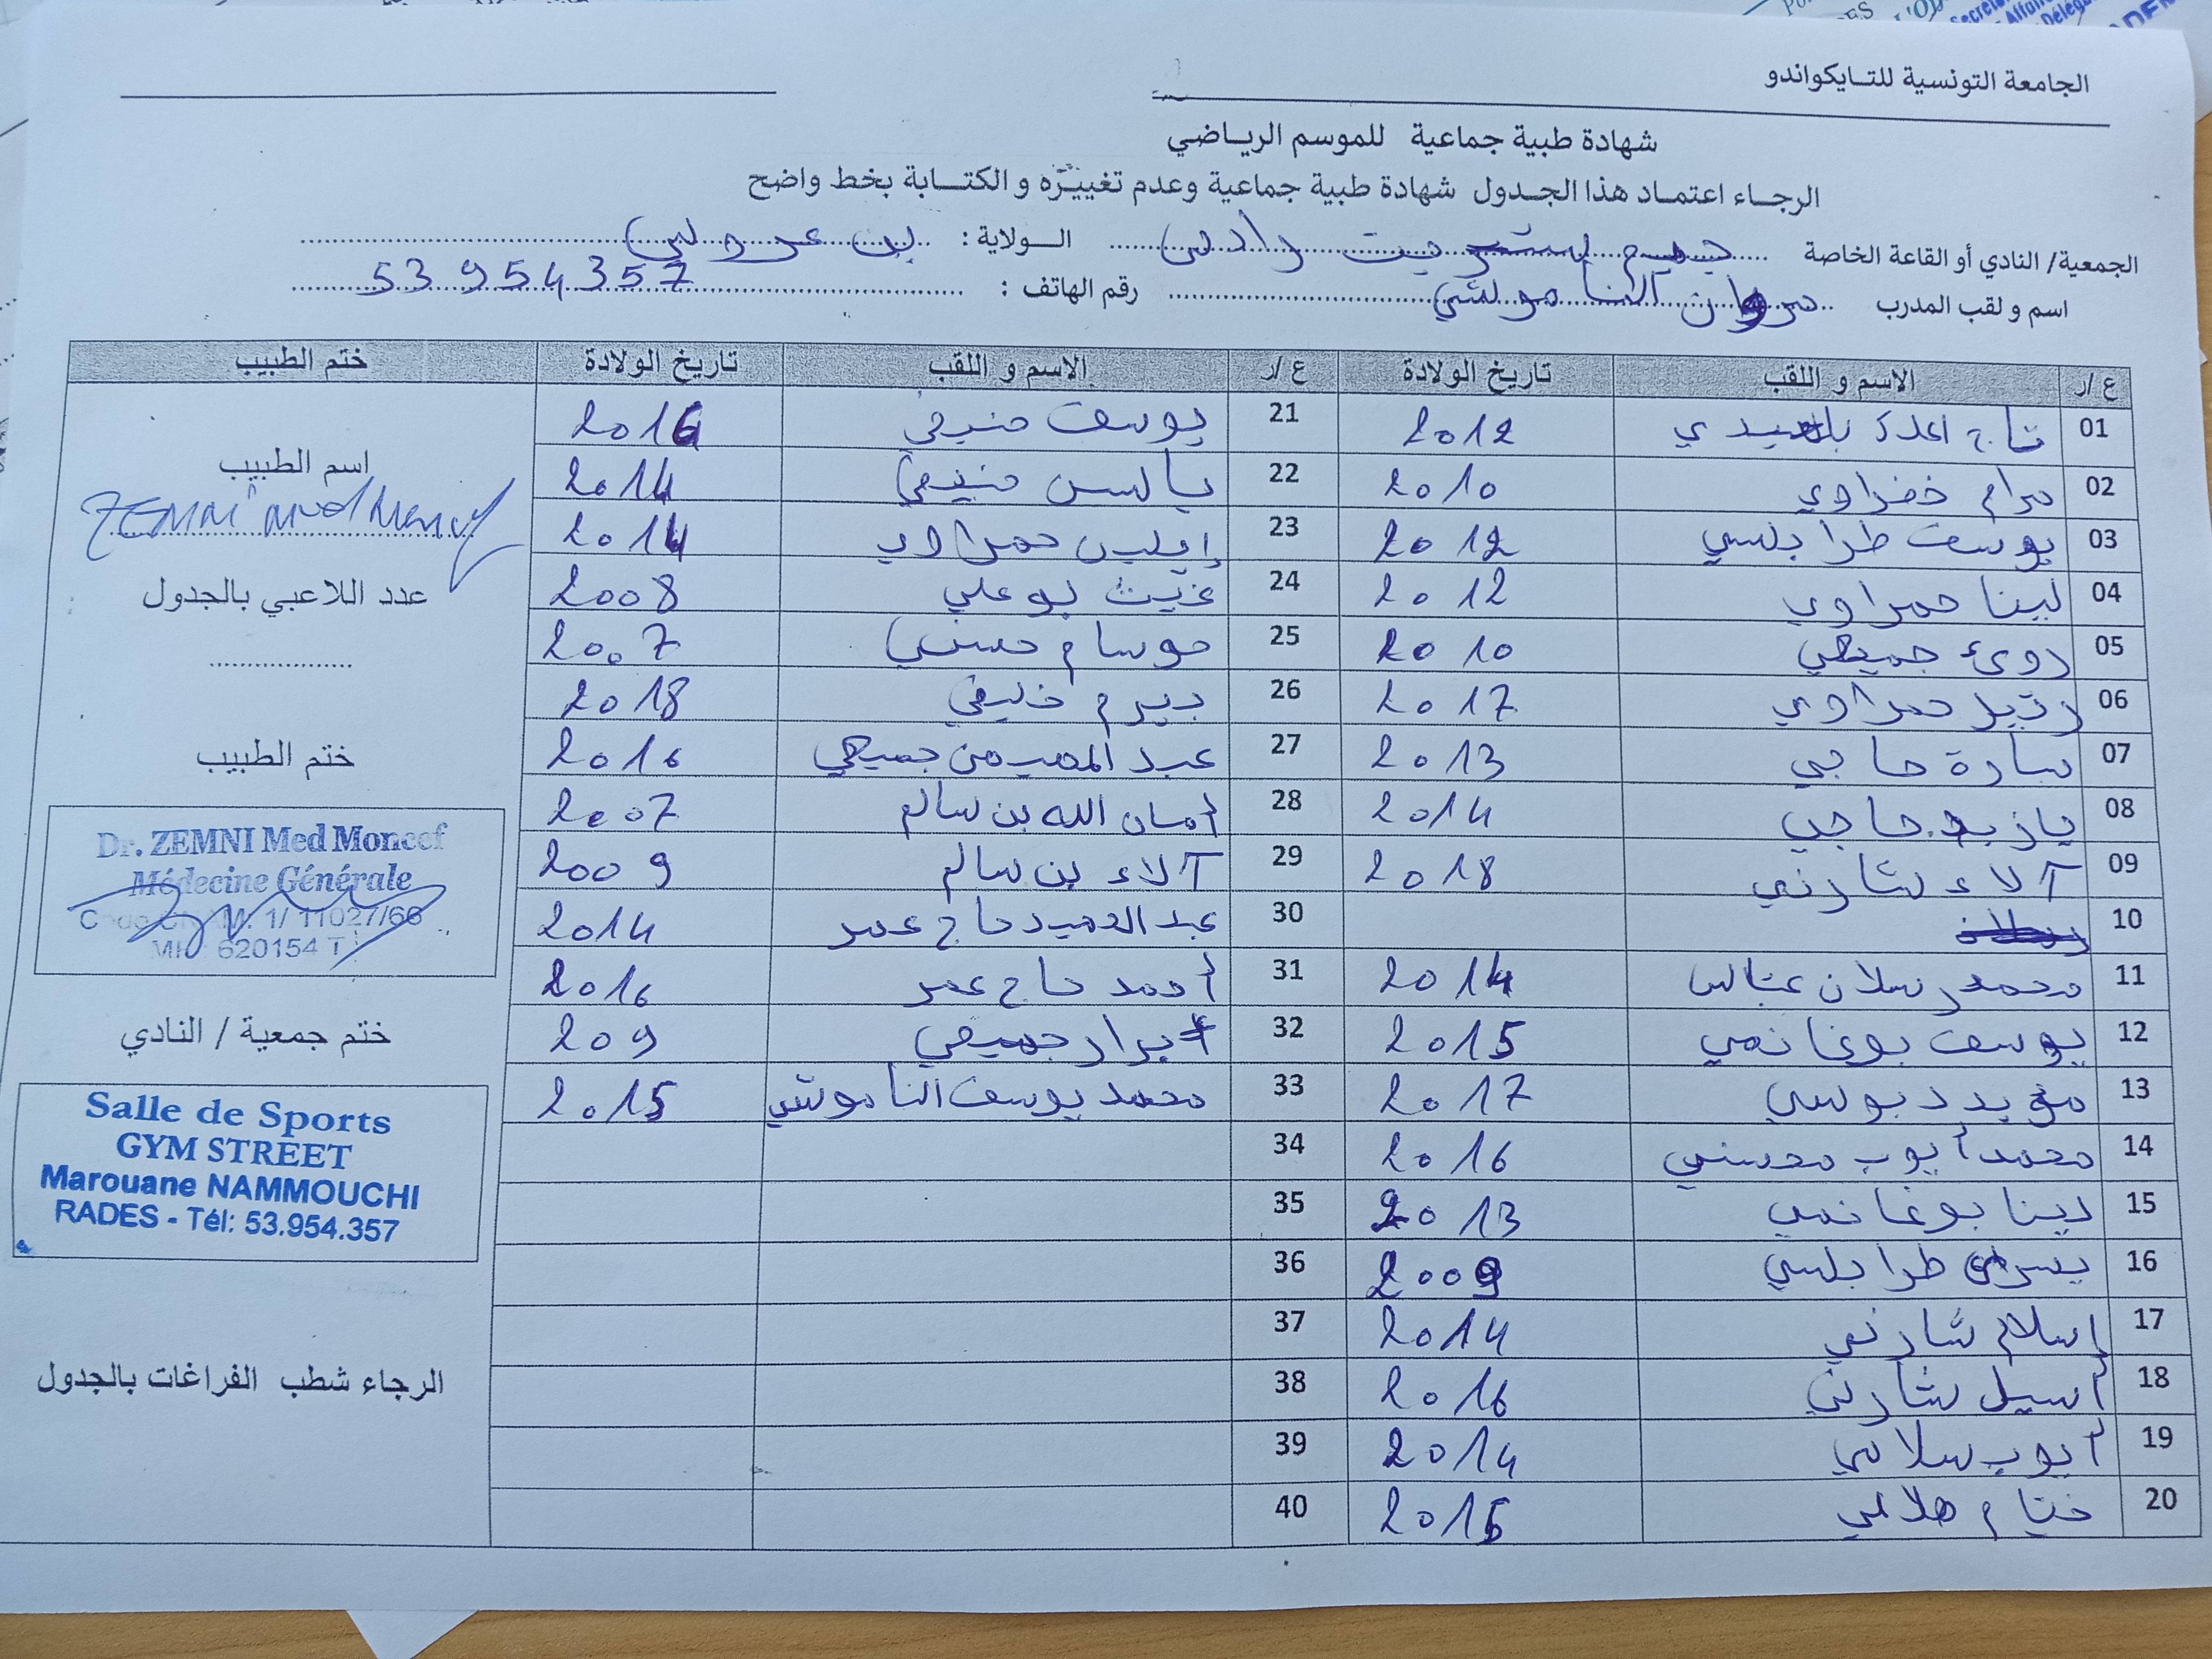 الجامعة التونسية للتايكواندو
شهادة طبية جماعية للموسم الرياضي
الرجاء اعتماد هذا الجدول شهادة طبية جماعية وعدم تغييره و الكتابة بخط واضح
الجمعية/ النادي أو القاعة الخاصة جيم ستريت رادس الولاية : بن عروس
اسم و لقب المدرب مروان الناموشي رقم الهاتف : 53 954 357
ع /ر الاسم و اللقب تاريخ الولادة ع /ر الاسم و اللقب تاريخ الولادة ختم الطبيب
01 تاج 2012
02 مرام خضراوي 2010
03 يوسف طرابلسي 2012
04 لينا حمراوي 2012
05 جميعي 2010
06 رتيل حمراوي 2017
07 سارة حاجي 2013
08 حاجي 2014
09 آلاء شارني 2018
10
11 محمد رسلان عباس 2014
12 يوسف بوغانمي 2015
13 مؤيد دبوسي 2017
14 محمد أيوب محسني 2016
15 لينا بوغانمي 2013
16 يسرى طرابلسي 2009
17 إسلام شارني 2014
18 أسيل شارني 2016
19 أيوب سلامي 2014
20 ختام هلالي
21 يوسف
22 2014
23 حمراوي 2014
24 غيث بوعلي 2008
25 حسني 2007
26 بيرم خليفي 2018
27 عبد المهيمن جميعي 2016
28 أمان الله بن سالم 2007
29 آلاء بن سالم 2009
30 عبد الحميد حاج عمر 2014
31 أحمد حاج عمر 2016
32 أبرار جميعي 209
33 محمد يوسف الناموشي 2015
34
35
36
37
38
39
40
اسم الطبيب
ZEMNI Med Moncef
عدد اللاعبي بالجدول
ختم الطبيب
Dr. ZEMNI Med Moncef
Médecine Générale
1/ 11027/66
620154 T
ختم جمعية / النادي
Salle de Sports
GYM STREET
Marouane NAMMOUCHI
RADES - Tél: 53.954.357
الرجاء شطب الفراغات بالجدول